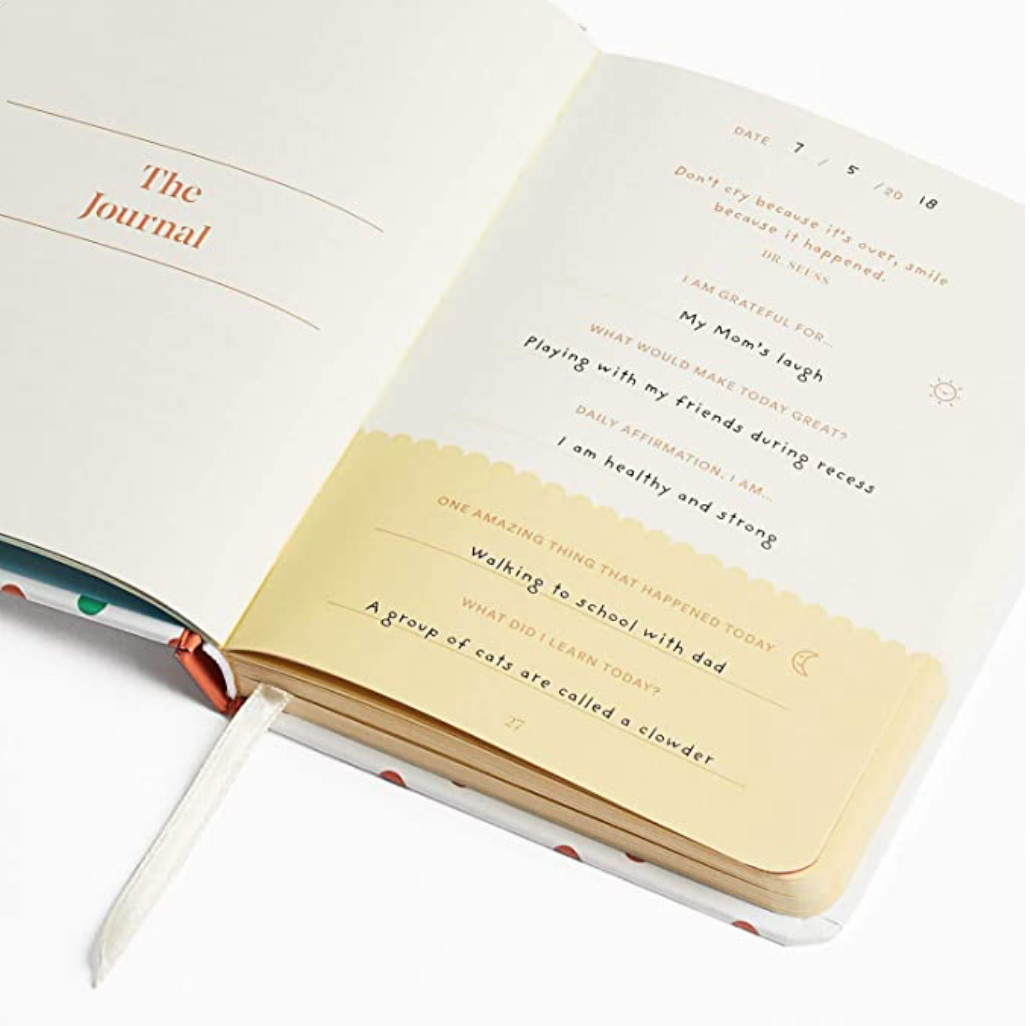 The
Journal
DATE 7 / 5 / 20 18
Don't cry because it's over, smile
because it happened.
DR. SEUSS
I AM GRATEFUL FOR...
My Mom's laugh
WHAT WOULD MAKE TODAY GREAT?
Playing with my friends during recess
DAILY AFFIRMATION, I AM...
I am healthy and strong
ONE AMAZING THING THAT HAPPENED TODAY
Walking to school with dad
WHAT DID I LEARN TODAY?
A group of cats are called a clowder
27